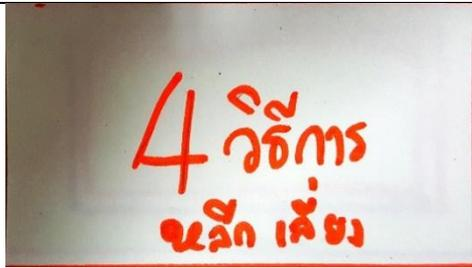 4 วิธีการ
หลีก เลี่ยง